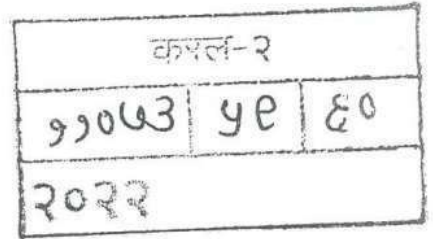 करल-२
११०७३ ५९ ६०
२०२२